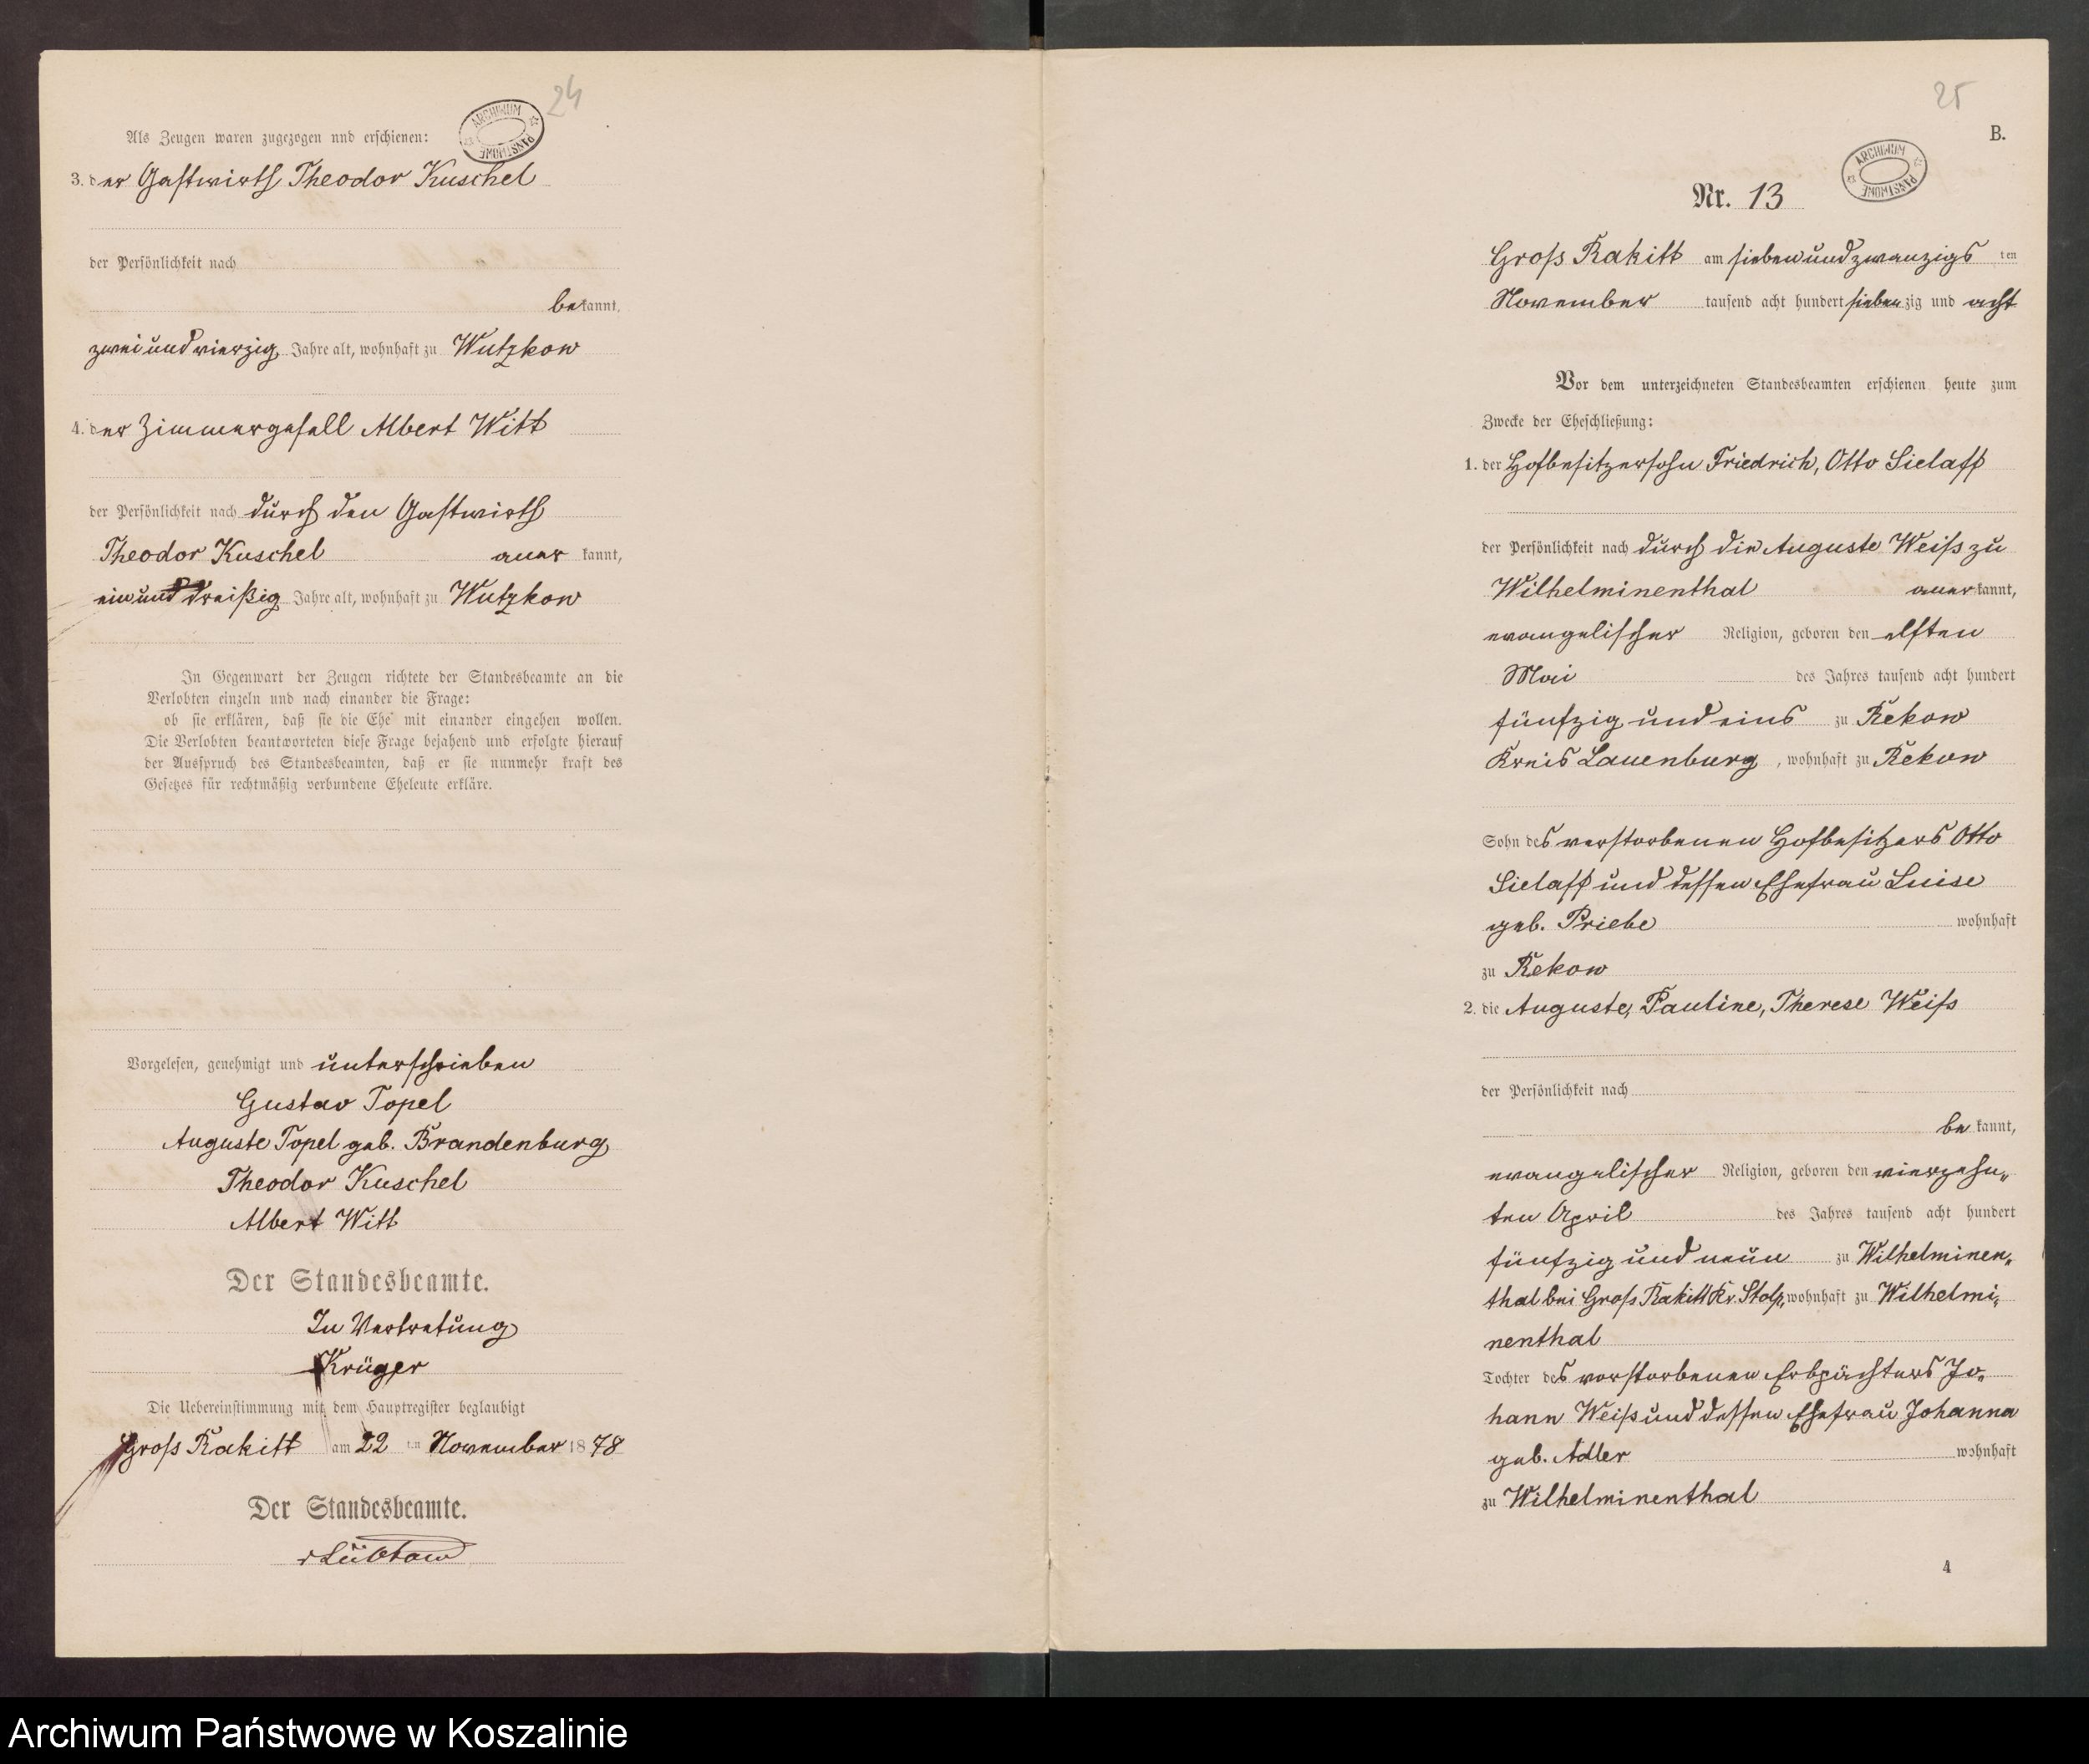 24
ARCHIWUM PAŃSTWOWE
Als Zeugen waren zugezogen nnd erschienen:
3. der Gastwirth Theodor Kuschel
der Persönlichkeit nach
bekannt,
zweiundvierzig Jahre alt, wohnhaft zu Wutzkow
4. der Zimmergesell Albert Witt
der Persönlichkeit nach durch den Gastwirth
Theodor Kuschel aner kannt,
einunddreißig Jahre alt, wohnhaft zu Wutzkow
In Gegenwart der Zeugen richtete der Standesbeamte an die
Verlobten einzeln und nach einander die Frage:
ob sie erklären, daß sie die Ehe mit einander eingehen wollen.
Die Verlobten beantworteten diese Frage bejahend und erfolgte hierauf
der Ausspruch des Standesbeamten, daß er sie nunmehr kraft des
Gesetzes für rechtmäßig verbundene Eheleute erkläre.
Vorgelesen, genehmigt und unterschrieben
Gustav Topel
Auguste Topel geb. Brandenburg
Theodor Kuschel
Albert Witt
Der Standesbeamte.
In Vertretung
Krüger
Die Uebereinstimmung mit dem Hauptregister beglaubigt
Gross Rakitt am 22 ten November 1878
Der Standesbeamte.
25
B.
ARCHIWUM PAŃSTWOWE
Nr. 13
Gross Rakitt am siebenundzwanzigs ten
November tausend acht hundert siebenzig und acht
Vor dem unterzeichneten Standesbeamten erschienen heute zum
Zwecke der Eheschließung:
1. der Hofbesitzersohn Friedrich, Otto Sielaff
der Persönlichkeit nach durch die Auguste Weiss zu
Wilhelminenthal anerkannt,
evangelischer Religion, geboren den elften
Mai des Jahres tausend acht hundert
fünfzig und eins zu Rekow
Kreis Lauenburg, wohnhaft zu Rekow
Sohn des verstorbenen Hofbesitzers Otto
Sielaff und dessen Ehefrau Luise
geb. Priebe wohnhaft
zu Rekow
2. die Auguste, Pauline, Therese Weiss
der Persönlichkeit nach
be kannt,
evangelischer Religion, geboren den vierzehn„
ten April des Jahres tausend acht hundert
fünfzig und neun zu Wilhelminen„
thal bei Gross Rakitt Kr. Stolp, wohnhaft zu Wilhelmi„
nenthal
Tochter des verstorbenen Erbpächters Jo„
hann Weiss und dessen Ehefrau Johanna
geb. Adler wohnhaft
zu Wilhelminenthal
4
Archiwum Państwowe w Koszalinie